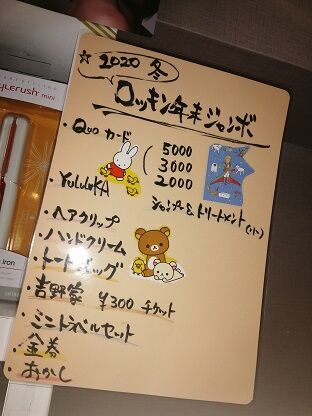 ☆2020 冬
ロッキン年末ジャンボ
・Quo カード ( 5000
3000
2000
・YOLUKA シャンプー&トリートメント(小)
・ヘアクリップ
・ハンドクリーム
・トートバッグ
・吉野家 ¥300 チケット
・ミニトラベルセット
・金券
・おかし
mini
iron